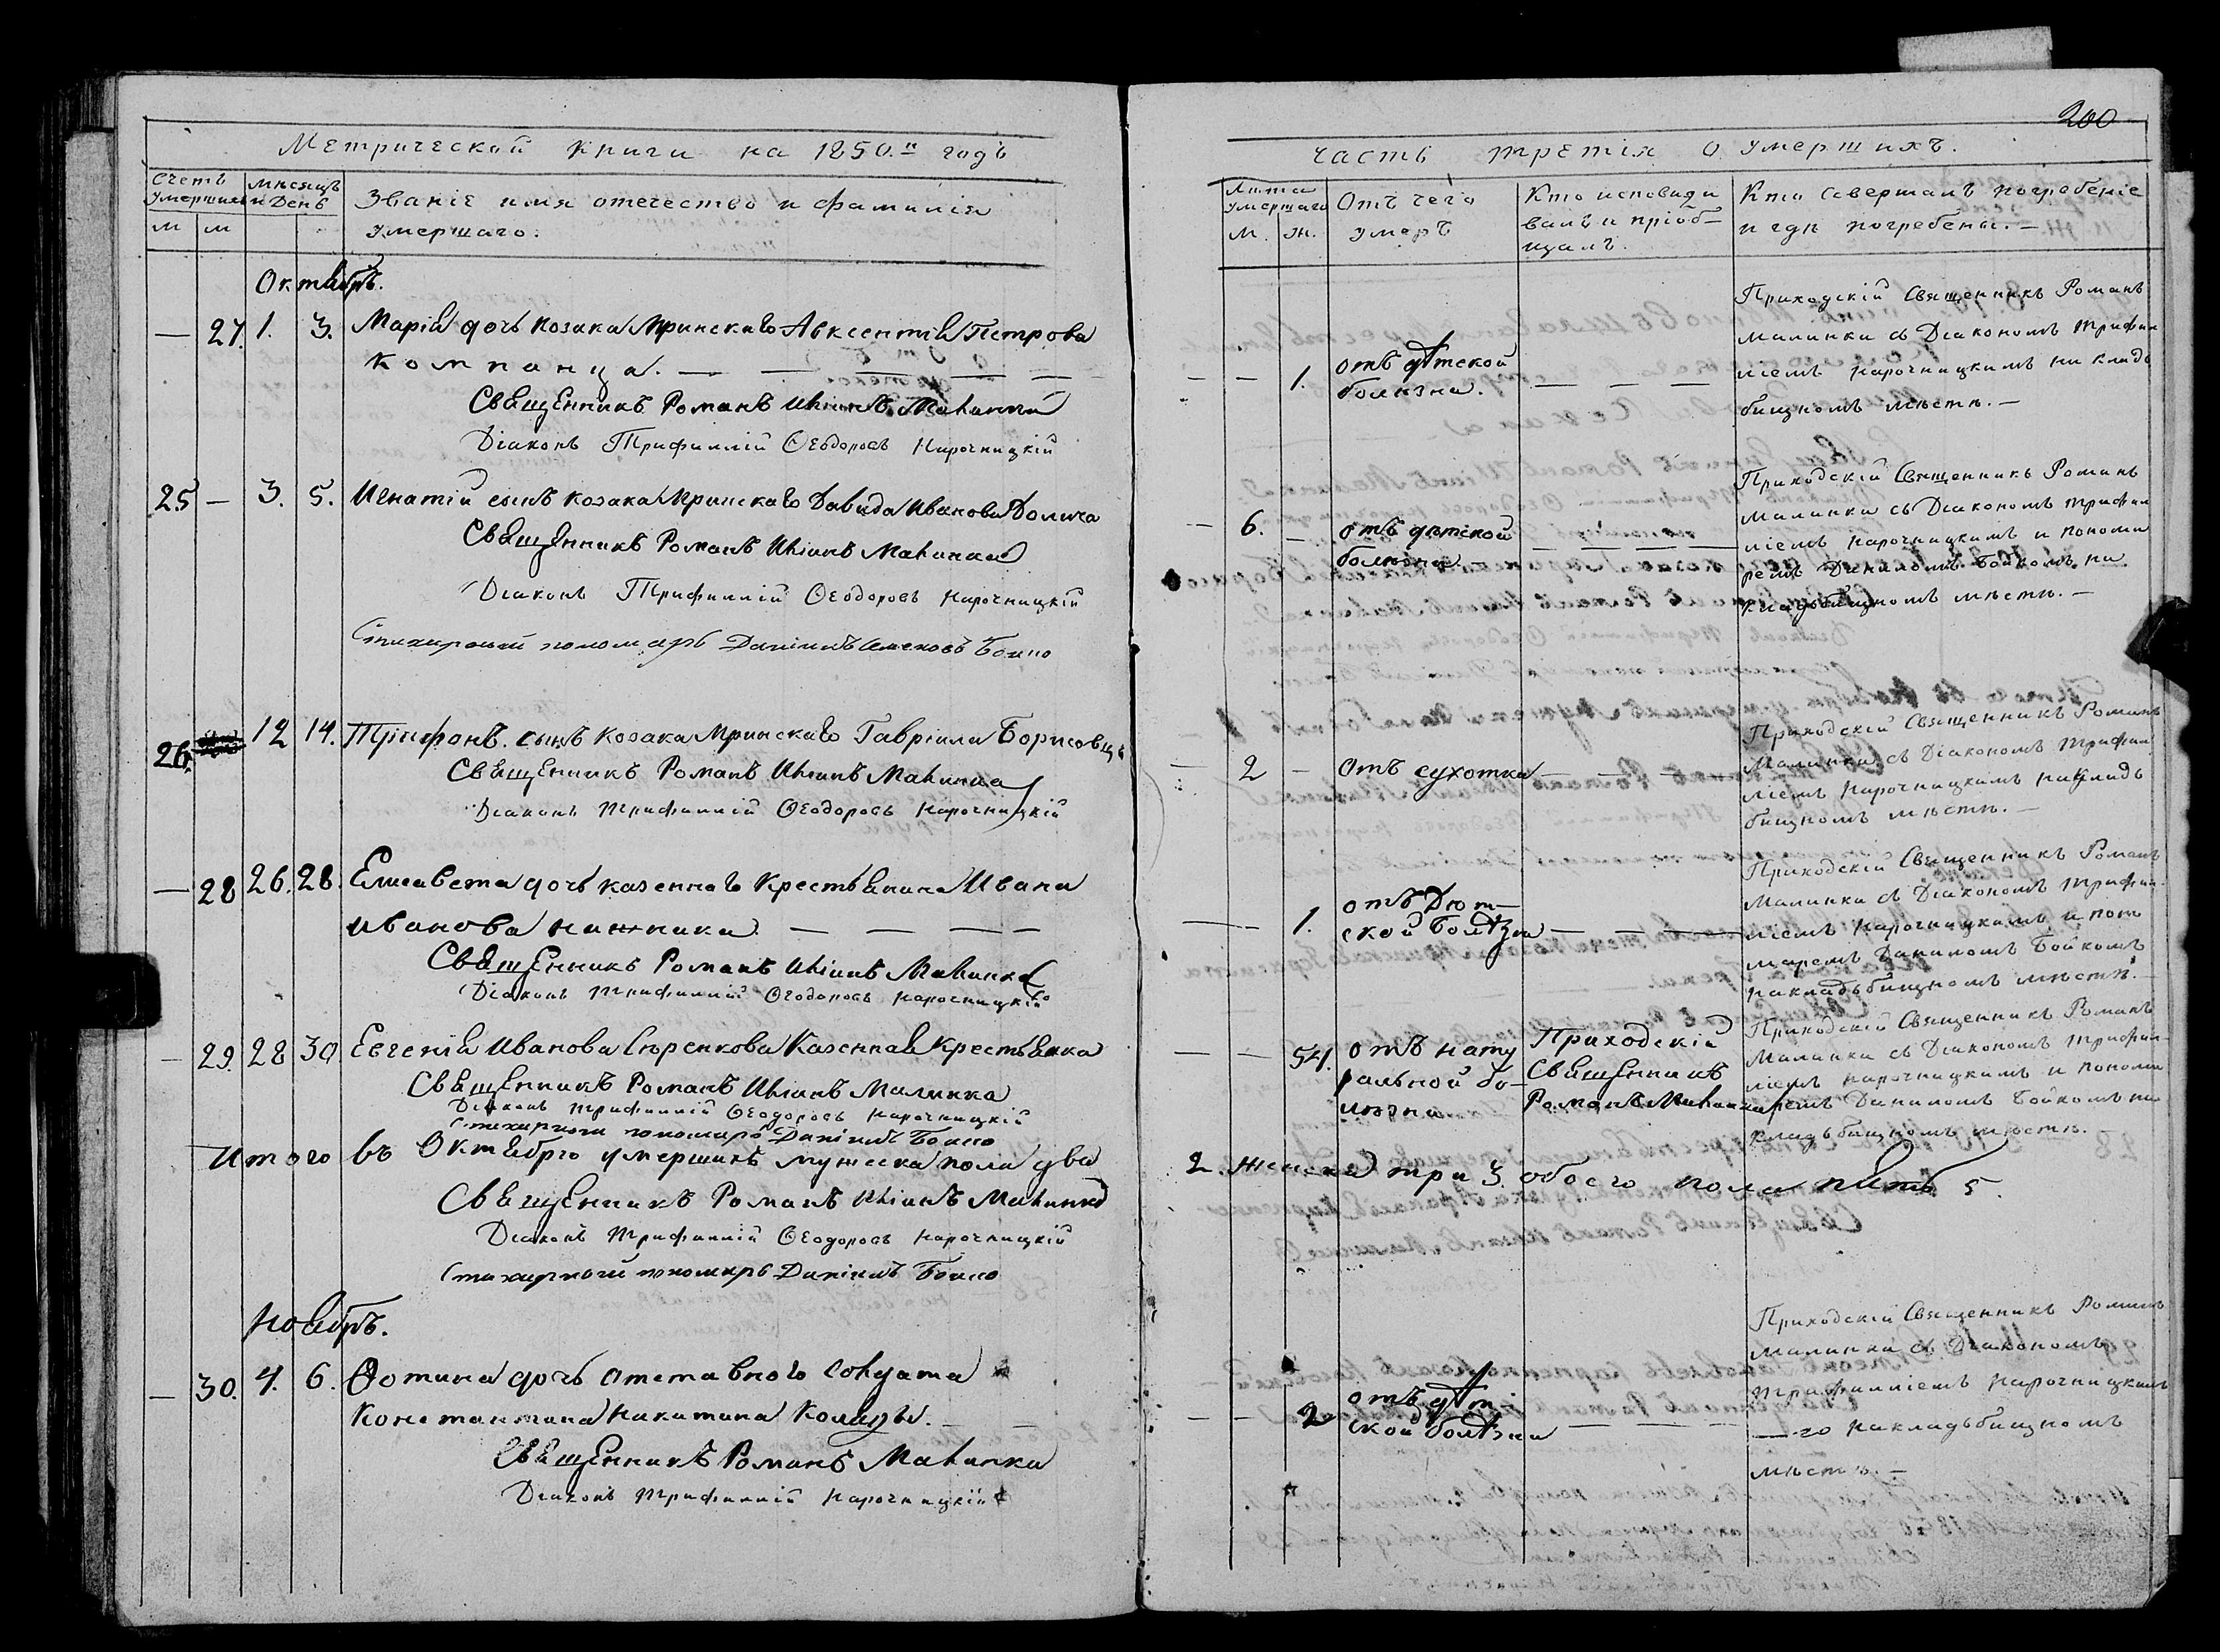 Метрической книги на 1850.й годъ
Счетъ умершихъ
Мѣсяцъ и день
Званіе имя отечество и фамилія
умершаго.
м м
Октябрь.
— 27. 1. 3. Марія дочь козака Мринскаго Авксентія Петрова
Компанца. — — — — —
Священникъ Романъ Иліинъ Малинка
Діаконъ Трифиллій Ѳеодоровъ Нарочницкій
25 — 3. 5. Игнатій сынъ козака Мринскаго Давида Иванова
Священникъ Романъ Иліинъ Малинка
Діаконъ Трифиллій Ѳеодоровъ Нарочницкій
Стихарный пономарь Даніилъ Бойко
26. 12 14. Трифонъ. сынъ козака Мринскаго Гавріила
Священникъ Романъ Иліинъ Малинка
Діаконъ Трифиллій Ѳеодоровъ Нарочницкій
— 28 26. 28. Елисавета дочь казеннаго крестьянина Ивана
Иванова — — — —
Священникъ Романъ Иліинъ Малинка
Діаконъ Трифиллій Ѳеодоровъ Нарочницкій
— 29. 28 30 Евгенія Иванова казенная крестьянка
Священникъ Романъ Иліинъ Малинка
Діаконъ Трифиллій Ѳеодоровъ Нарочницкій
Стихарный пономарь Даніилъ Бойко
Итого въ Октябрѣ умершихъ мужеска пола два
Священникъ Романъ Иліинъ Малинка
Діаконъ Трифиллій Ѳеодоровъ Нарочницкій
Стихарный пономарь Даніилъ Бойко
Ноябрь.
— 30. 4. 6. Ѳотина дочь отставного солдата
Константина Никитина Коляды. — —
Священникъ Романъ Малинка
Діаконъ Трифиллій Нарочницкій
200
Часть третія о умершихъ.
Лѣта умершаго
М. Ж.
Отъ чего
умеръ
Кто исповѣды
валъ и пріоб–
щалъ.
Кто совершалъ погребеніе
и гдѣ погребены. —
— — 1. отъ дѣтской
болѣзни. — — —
Приходскій Священникъ Романъ
Малинка съ Діакономъ Трифил
ліемъ Нарочницкимъ на кладь
бищномъ мѣстѣ. —
— 6. — отъ дѣтской
болѣзни — — — —
Приходскій Священникъ Романъ
Малинка съ Діакономъ Трифил
ліемъ Нарочницкимъ и понома
ремъ Даниломъ Бойкомъ на
кладьбищномъ мѣстѣ. —
— 2 — отъ сухотки — — —
Приходскій Священникъ Романъ
Малинка съ Діакономъ Трифил
ліемъ Нарочницкимъ на кладь
бищномъ мѣстѣ. —
— — 1. отъ Дѣт–
ской болѣзни — — —
Приходскій Священникъ Романъ
Малинка съ Діакономъ Трифил–
ліемъ Нарочницкимъ и поно
маремъ Даниломъ Бойкомъ
на кладьбищномъ мѣстѣ. —
— — 54. отъ нату
ральной бо–
лѣзни
Приходскій
Священникъ
Романъ Малинка
Приходскій Священникъ Романъ
Малинка съ Діакономъ Трифил–
ліемъ Нарочницкимъ и понома
ремъ Даниломъ Бойкомъ на
кладьбищномъ мѣстѣ. —
2. женска три 3. обоего пола пять 5.
— — 2 отъ дѣт–
ской болѣзни — — —
Приходскій Священникъ Романъ
Малинка съ Діакономъ
Трифилліемъ Нарочницкимъ
на кладьбищномъ
мѣстѣ. —